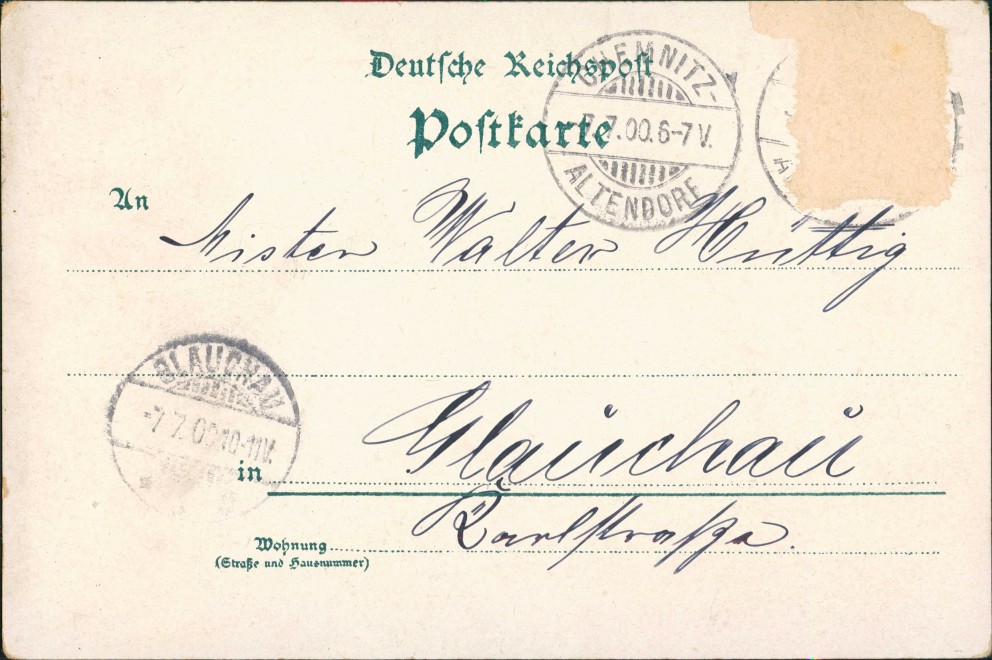 Deutsche Reichspost
Postkarte
CHEMNITZ-
7.7.00.6-7V.
ALTENDORF
An
Mister Walter Hüttig
GLAUCHAU
-7.7.00.10-11V.
in
Glauchau
Karlstraße.
Wohnung
(Straße und Hausnummer)